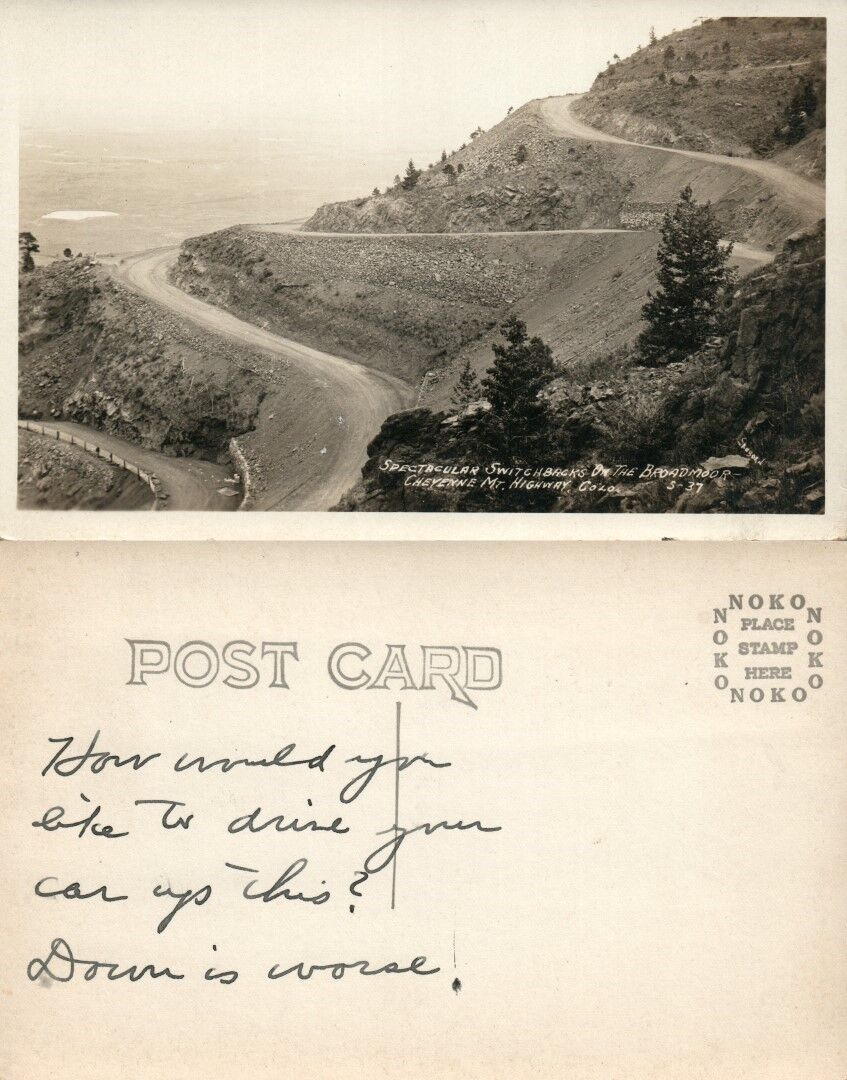 SPECTACULAR SWITCHBACKS ON THE BROADMOOR-
CHEYENNE MT. HIGHWAY COLO. S-37
POST CARD
NOKO
NOKO
PLACE
STAMP
HERE
NOKO
NOKO
How would you
like to drive your
car up this?
Down is worse!